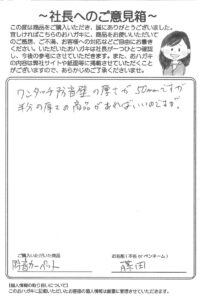 ～社長へのご意見箱～
この度は商品をご購入いただき、誠にありがとうございました。
宜しければこちらのおハガキに、商品をお使いいただいて
のご感想、ご不満、お客様への対応などご自由にお書き
ください。いただいたおハガキは社長が一つひとつ確認
し、今後の参考にさせていただきます。また、おハガキ
の内容は弊社サイトや紙面等に掲載させていただくこと
がございますので、あらかじめご了承くださいませ。
ワンタッチ防音壁の厚さが50mmですが
半分の厚さの商品があればいいのですが。
ご購入いただいた商品
防音カーペット
お名前（予名 or ペンネーム）
藤田
【個人情報の取り扱いについて】
このおハガキに記載いただいたお客様の個人情報は厳重に管理させていただきます。